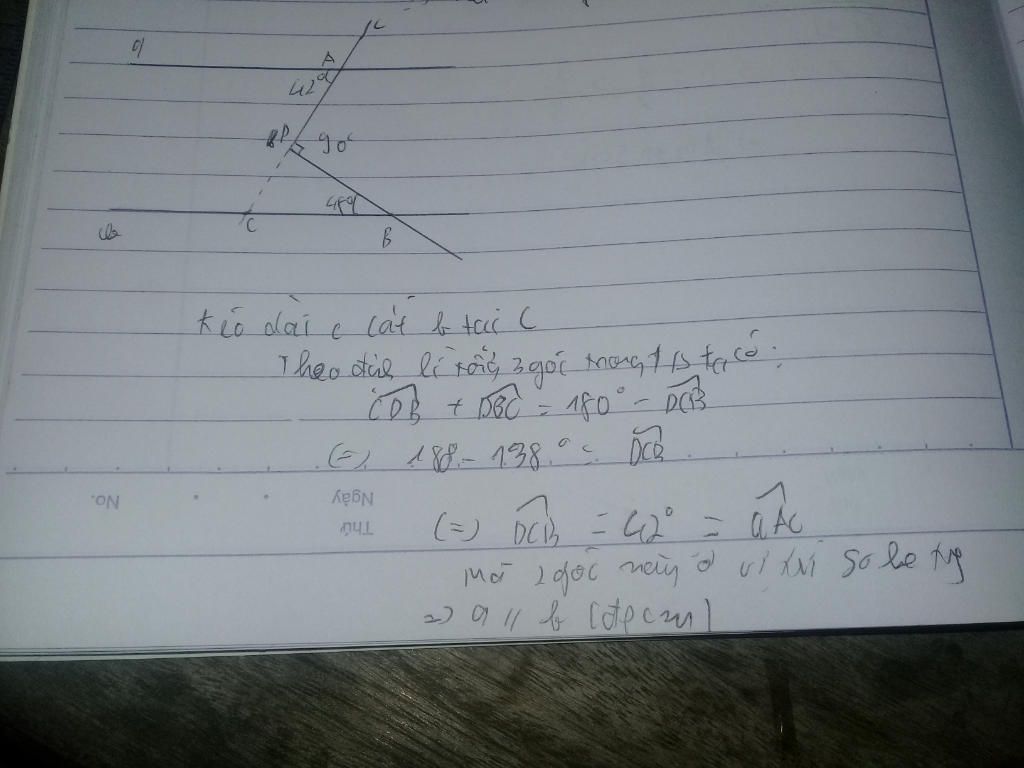 c
a
A
42°
D
90°
48°
C
B
b
Kéo dài c cắt b tại C
Theo định lí tổng 3 góc trong 1 ta có:
CDB + DBC = 180° - DCB
(=) 188 - 138° = DCB
(=) DCB = 42° = aAC
Mà 2 góc này ở vị trí so le tg
=) a // b (đpcm)
No.
Ngày
Thứ